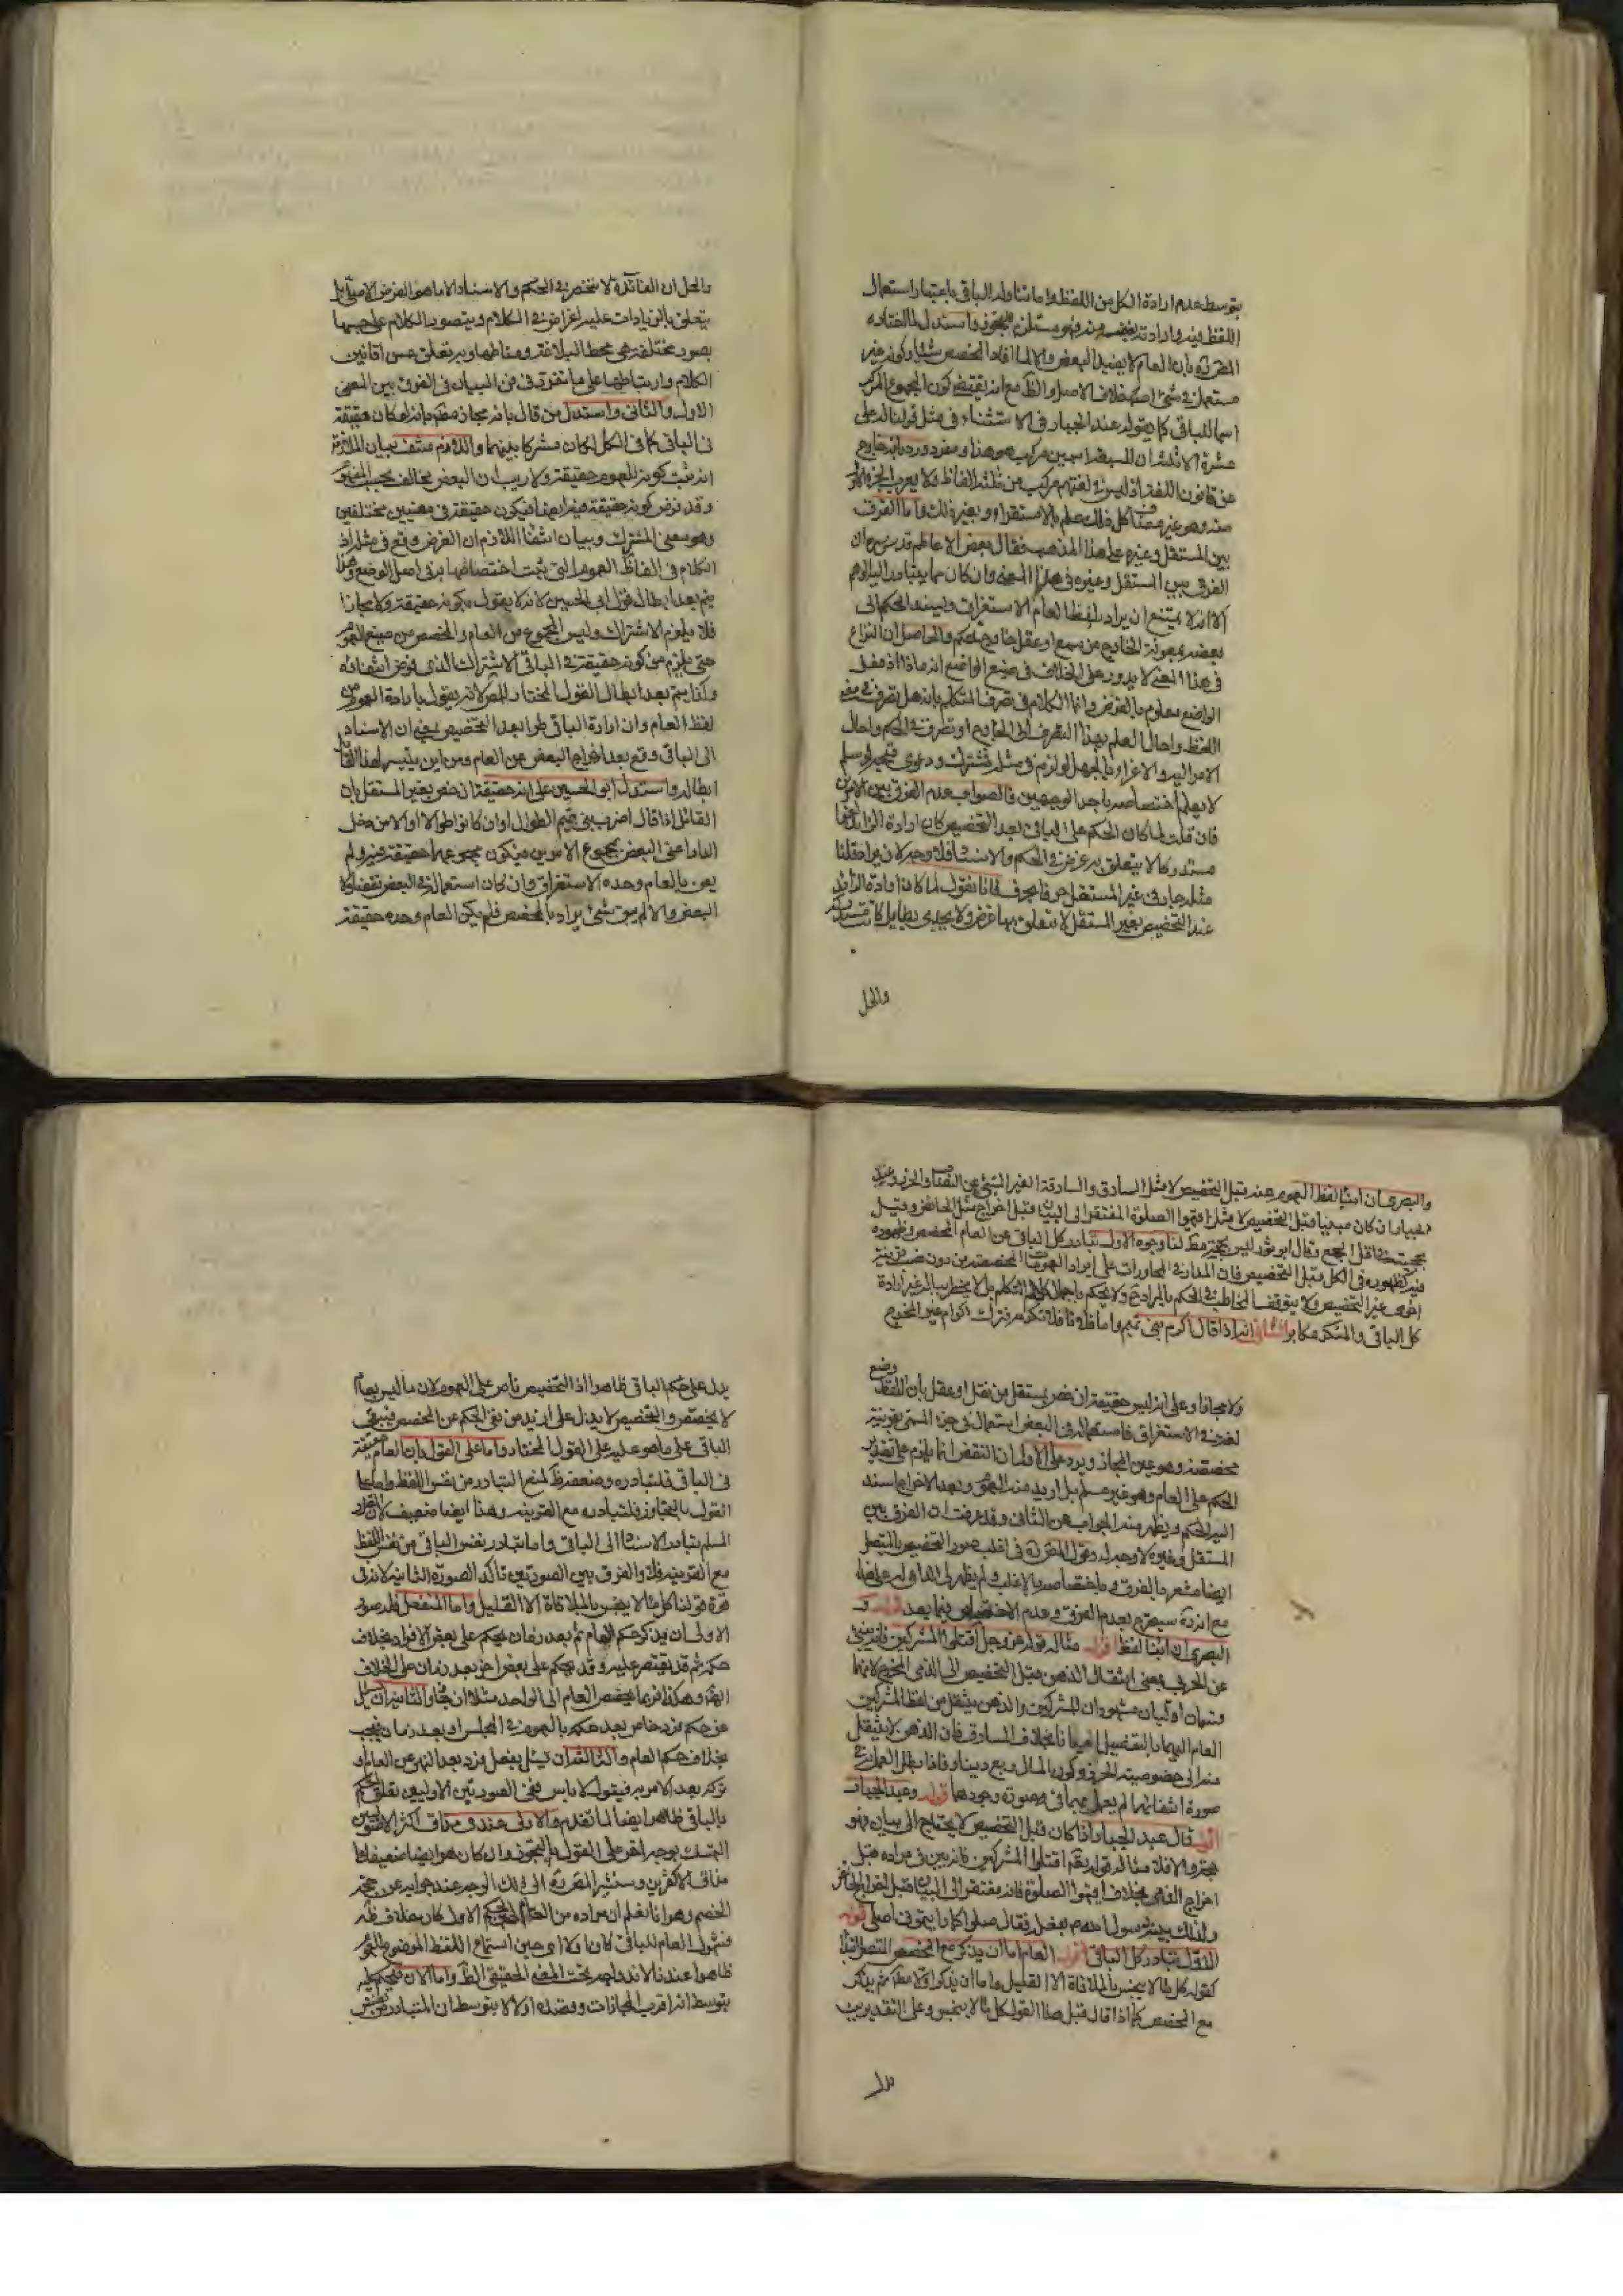 بتوسط عدم ارادة الكل من اللفظ واما تناوله الباقي باعتبار استعمال
اللفظ فيه وارادة بعضه منه فهو مستلزم للتجوز واستدل لما اختاره
بان العام لا يفيد البعض والا لما افاد المخصص شيئا وكونه غير
مستعمل في شيء اصلا خلاف الاصل والظ مع انه يقتضي كون المجموع المركب
اسما للباقي كما يقوله عبد الجبار في الاستثناء في مثل قولنا له علي
عشرة الا ثلثة ان للسبعة اسمين مركب هو هذا ومفرد ورد بانه خارج
عن قانون اللغة اذ ليس في لغتهم مركب من ثلثة الفاظ ولا يعرب الجزء الاول
منه وهو غير مضاف كل ذلك علم بالاستقراء وبغير ذلك واما الفرق
بين المستقل وغيره على هذا المذهب فقال بعض الاعاظم قدس سره ان
الفرق بين المستقل وغيره في هذا المعنى وان كان مما يتبادر اليه الوهم
الا انه لا يمتنع ان يراد بلفظ العام الاستغراق ويسند الحكم الى
بعضه بمعونة الخارج من سمع او عقل خارج للحكم والحاصل ان النزاع
في هذا المعنى لا يدور على الخلاف في صنع الواضع انه ماذا اذ فعل
الواضع معلوم بالفرض وانما الكلام في تصرف المتكلم بانه هل تصرف في معنى
اللفظ واحال العلم بهذا التصرف الى الخارج او تصرف في الحكم واحال
الامر اليه والاغراء بالجهل لو لزم في مثله فمشترك ودعوى لو سلم
لا يعلم اختصاصه باحد الوجهين فالصواب عدم الفرق بين الامرين
فان قلت لما كان الحكم على الباقي بعد التخصيص كان ارادة الزائد
مستدركا لا يتعلق به غرض في الحكم والاسناد فلا وجه لان يراد قلنا
مثله جار في غير المستقل حرفا بحرف فانا نقول لما كان ارادة الزائد
عند التخصيص بغير المستقل لا يتعلق بها غرض ولا يجدي بطائل كانت مستدركة
والحل
والحل ان الفائدة لا تنحصر في الحكم والاسناد الا ما هو الغرض الاصلي بل
يتعلق بالزيادات عليه اغراض في الكلام ويتصور الكلام على حسبها
بصور مختلفة هي محط البلاغة ومناطها وبه يتعلق حسن افانين
الكلام وارتباطها على ما تقرر في فن البيان في الفرق بين المعنى
الاول والثاني واستدل من قال بانه مجاز مط بانه لو كان حقيقة
في الباقي كما في الكل لكان مشتركا بينهما واللازم منتف بيان الملازمة
انه ثبت كونه للعموم حقيقة ولا ريب ان البعض مخالف بحسب المفهوم
وقد فرض كونه حقيقة فيه ايضا فيكون حقيقة في معنيين مختلفين
وهو معنى المشترك وبيان انتفاء اللازم ان الفرض وقع في مثله اذ
الكلام في الفاظ العموم التي ثبت اختصاصها به في اصل الوضع وهذا
يتم بعد ابطال قول ابي الحسين لانه لا يقول بكونه حقيقة ولا مجازا
فلا يلزم الاشتراك وليس المجموع من العام والمخصص من صيغ العموم
حتى يلزم من كونه حقيقة في الباقي الاشتراك الذي فرض انتفائه
وكذا يتم بعد ابطال القول المختار للمص لانه يقول بارادة العموم من
لفظ العام وان ارادة الباقي طرأ بعد التخصيص بمعنى ان الاسناد
الى الباقي وقع بعد اخراج البعض عن العام ومن اين يتيسر لهذا القائل
ابطاله واستدل ابو الحسين على انه حقيقة ان خص بغير المستقل بان
القائل اذا قال اضرب بني تميم الطوال او ان كانوا طوالا او الا من دخل
الدار اعني البعض بمجموع الامرين فيكون مجموعهما حقيقة فيه ولم
يعن بالعام وحده الاستغراق وان كان استعمالا في البعض نقضا
البعض والا لم يبق شيء يراد بالمخصص فلم يكن العام وحده حقيقة
والبصري ان انبأ لفظ العموم عنه قبل التخصيص لا مثل السارق والسارقة الغير المنبئ عن النصاب والحرز وعند
الجبار ان كان مبينا قبل التخصيص لا مثل اقيموا الصلوة المفتقر الى البيان قبل اخراج مثل الحائض وقيل
بحجيته في اقل الجمع وقال ابو ثور ليس بحجة مط لنا وجوه الاول تبادر كل الباقي من العام المخصص وظهوره
فيه كظهوره في الكل قبل التخصيص فان المدار في المحاورات على ايراد العمومات المخصصة من دون نصب قرينة
اخرى غير التخصيص ولا يتوقف المخاطب في الحكم بالمراد ولا يحكم باجمال كلام المتكلم بل لا يخطر بباله غير ارادة
كل الباقي والمنكر مكابر الثاني انه اذا قال اكرم بني تميم واما فلانا فلا تكرمه فترك اكرام غير المخرج
ولا مجازا وعلى انه ليس حقيقة ان خص بمستقل من نقل او عقل بان اللفظ وضع
لغة في الاستغراق فاستعماله في البعض استعمال في جزء المسمى بقرينة
مخصصة وهو عين المجاز ويرد على الاول ان النقض انما يلزم على تقدير
الحكم على العام وهو غير مسلم بل اريد منه العموم وبعد الاخراج اسند
اليه الحكم ويظهر منه الجواب عن الثاني وقد عرفت ان الفرق بين
المستقل وغيره لا وجه له وقول المص في اغلب صور التخصيص بالمتصل
ايضا مشعر بالفرق وباختصاصه بالاغلب ولم يظهر لي الداعي له على هذا
مع انه سيصرح بعدم الفرق وعدم الاختصاص فيما بعد قوله و
البصري ان انبأ لفظ اقول مثاله قوله عز وجل اقتلوا المشركين فانه ينبئ
عن الحربي بمعنى انتقال الذهن قبل التخصيص الى الذمي المخرج لانهما
قسمان اوليان مشهوران للمشركين والذهن ينتقل من لفظ المشركين
العام اليهما بالتفصيل احيانا بخلاف السارق فان الذهن لا ينتقل
منه الى خصوصية الحرز وكون المال ربع دينار فاذا بطل العمل في
صورة انتفائهما لم يعمل بهما في صورة وجودهما قوله وعبد الجبار
اقول قال عبد الجبار اذا كان قبل التخصيص لا يحتاج الى بيان فهو
حجة والا فلا مثاله قوله تعم اقتلوا المشركين فانه بين في مراده قبل
اخراج الذمي بخلاف اقيموا الصلوة فانه مفتقر الى البيان قبل اخراج الحائض
ولذلك بينه رسول الله صم بفعله فقال صلوا كما رايتموني اصلي قوله
الاول تبادر كل الباقي اقول العام اما ان يذكر مع المخصص المتصل ابتداء
كقوله كل ماء لا ينجس بالملاقاة الا القليل واما ان يذكر اولا مط ثم يذكر
مع المخصص كما اذا قال قبل هذا القول كل ماء لا ينجس وعلى التقديرين
يدل
يدل على حكم الباقي ظاهرا اذ التخصيص ناص على العموم لان ما ليس بعام
لا يخصص والتخصيص لا يدل على ازيد من نفي الحكم عن المخصص فيبقى
الباقي على ما هو عليه على القول المختار واما على القول بان العام حقيقة
في الباقي فلتبادره وضعفه ظ لمنع التبادر من نفس اللفظ واما على
القول بالتجاوز فلتبادره مع القرينة وهذا ايضا ضعيف لان القدر
المسلم تبادر الاسناد الى الباقي واما تبادر نفس الباقي من نفس اللفظ
مع القرينة فلا والفرق بين الصورتين تأكد الصورة الثانية لانه في
قوة قولنا كل ماء لا ينجس بالملاقاة الا القليل واما المنفصل فله صور
الاولى ان يذكر حكم العام ثم بعد زمان يحكم على بعض الافراد بخلاف
حكمه ثم قد يقتصر عليه وقد يحكم على بعض اخر بعد زمان على الخلاف
ايضا وهكذا فربما يخصص العام الى الواحد مثلا والثانية ان يسئل
عن حكم فرد خاص بعد حكمه بالعموم في المجلس او بعد زمان فيجيب
بخلاف حكم العام والثالثة ان يسئل بفعل فرد بعد النهي عن العام او
تركه بعد الامر به فيقول لا بأس ففي الصورتين الاوليين تعلق الحكم
بالباقي ظاهر ايضا لما تقدم والاولى عندي وفاق اكثر الاصوليين
التمسك بوجه اخر على القول بالتجوز وان كان هو ايضا ضعيفا
مذاق الاكثرين وسيشير المص الى ذلك الوجه عند جوابه عن حجة
الخصم وهو انا نعلم ان مراده من العام الحكم الاول كان خلاف ظ
فشمول العام للباقي كان اولا اي حين استماع اللفظ الموضوع للعموم
ظاهرا عندنا لانه داخل تحت المعنى الحقيقي الظ واما الان فيحكم عليه
بتوسط انه اقرب المجازات وفضله اولا لا بتوسط ان المتبادر من نفس